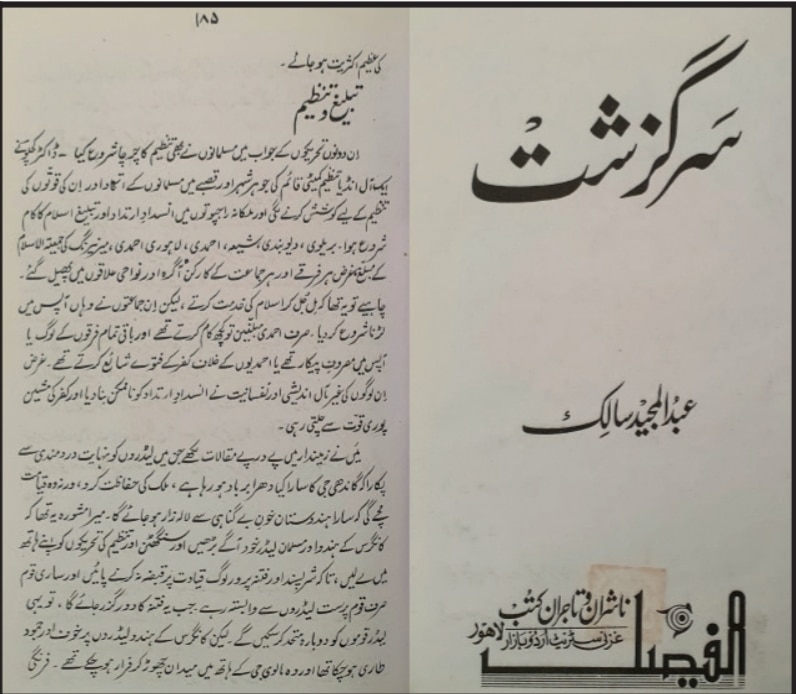 ۱۸۵
کی عظیم اکثریت ہو جائے ۔
تبلیغ و تنظیم
اِن دونوں تحریکوں کے جواب میں مسلمانوں نے بھی تنظیم کا چرچا شروع کیا ۔ ڈاکٹر کچلو نے
ایک آل انڈیا تنظیم کمیٹی قائم کی جو ہر شہر اور قصبے میں مسلمانوں کے اتحاد اور اِن کی قوتوں کی
تنظیم کے لیے کوشش کرنے لگی اور ملکانہ راجپوتوں میں انسدادِ ارتداد اور تبلیغ اسلام کا کام
شروع ہوا۔ بریلوی ، دیوبندی ، شیعہ ، احمدی ، لاہوری احمدی ، میر نیرنگ کی جمیعۃ الاسلام
کے مبلغ غرض ہر فرقے اور ہر جماعت کے کارکن آگرہ اور نواحی علاقوں میں پھیل گئے ۔
چاہیے تو یہ تھا کہ مل جُل کر اسلام کی خدمت کرتے ، لیکن اِن جماعتوں نے وہاں آپس میں
لڑنا شروع کر دیا ۔ صرف احمدی مبلغین تو کچھ کام کرتے تھے اور باقی تمام فرقوں کے لوگ یا
آپس میں مصروفِ پیکار تھے یا احمدیوں کے خلاف کفر کے فتوے شائع کرتے تھے ۔ غرض
اِن لوگوں کی غیر مآل اندیشی اور نفسانیت نے انسدادِ ارتداد کو ناممکن بنا دیا اور کفر کی مشین
پوری قوت سے چلتی رہی ۔
میں نے زمیندار میں پے در پے مقالات لکھے جن میں لیڈروں کو نہایت دردمندی سے
پکارا کہ گاندھی جی کا سارا کیا دھرا برباد ہو رہا ہے ، ملک کی حفاظت کرو ، ورنہ وہ قیامت
مچے گی کہ سارا ہندوستان خونِ بے گناہی سے لالہ زار ہو جائے گا۔ میرا مشورہ یہ تھا کہ
کانگرس کے ہندو اور مسلمان لیڈر خود آگے بڑھیں اور سنگھٹن اور تنظیم کی تحریکوں کو اپنے ہاتھ
میں لے لیں ، تاکہ شر پسند اور فتنہ پرور لوگ قیادت پر قبضہ نہ کرنے پائیں اور ساری قوم
صرف قوم پرست لیڈروں سے وابستہ رہے ۔ جب یہ فتنہ کا دور گزر جائے گا ، تو یہی
لیڈر قوموں کو دوبارہ متحد کر سکیں گے ۔ لیکن کانگرس کے ہندو لیڈروں پر خوف اور جمود
طاری ہو چکا تھا اور وہ مالوی جی کے ہاتھ میں میدان چھوڑ کر فرار ہو چکے تھے ۔ فرنگی
سرگزشت
عبدُالمجید سالِک
ناشران و تاجران کتب
غزنی سٹریٹ اردو بازار لاہور
الفیصل